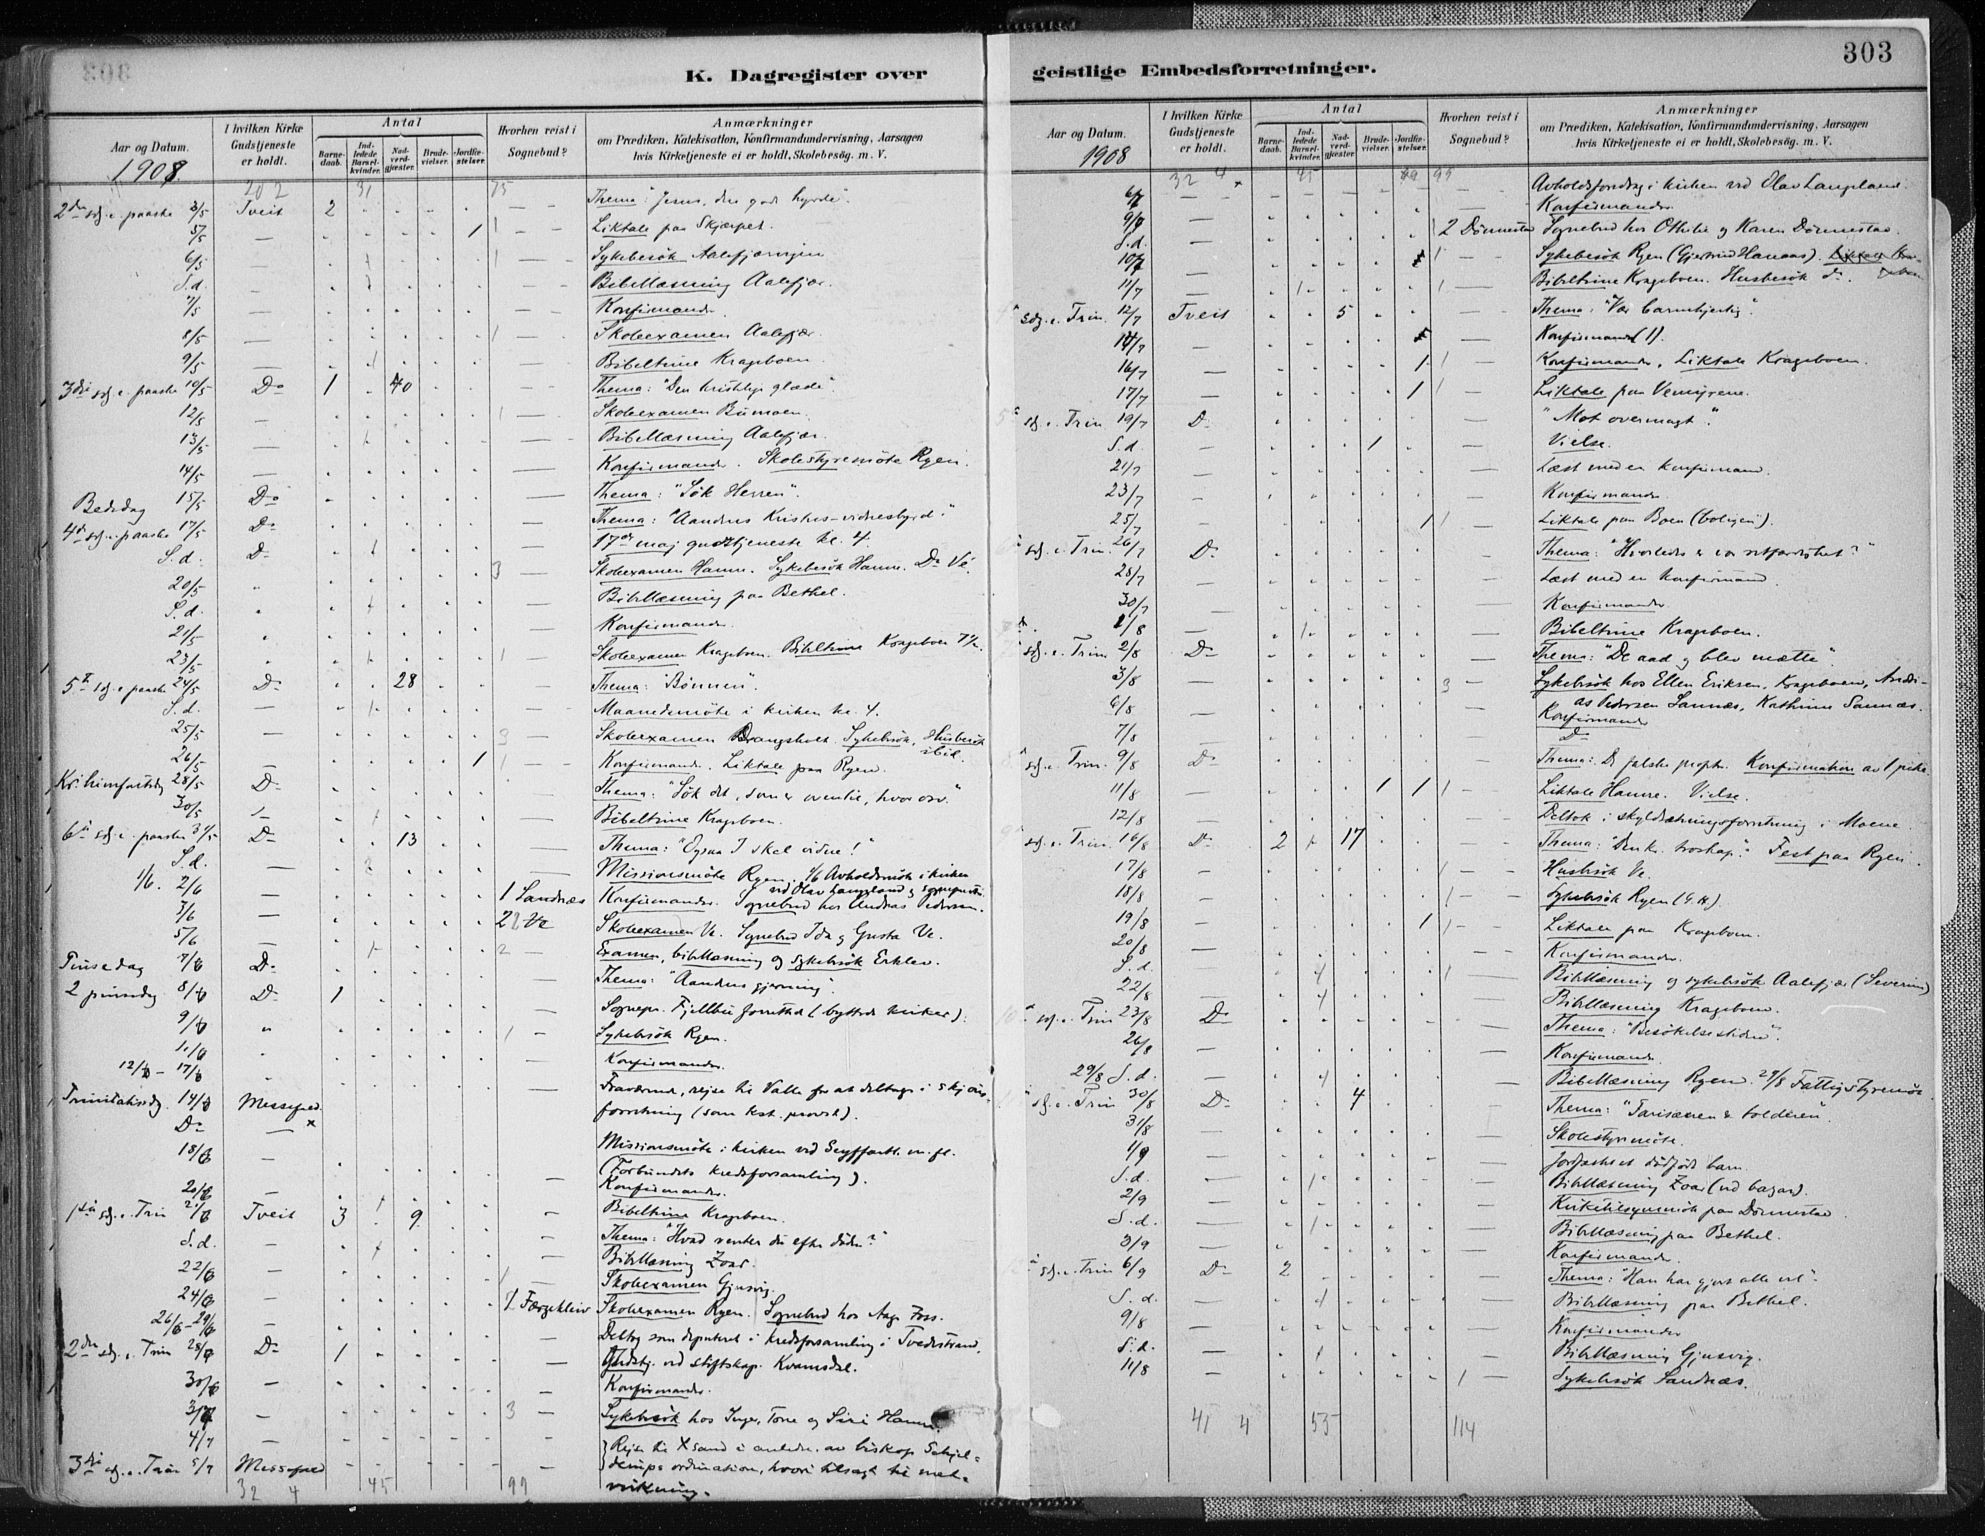 303
K. Dagregister over
Aar og Datum.
1908.
I hvilken Kirke Gudstjeneste er holdt.
Antal
Barne-daab.
Ind-ledede Barsel-kvinder.
Nad-verd-gjæster.
Brude-vielser.
Jordfæ-stelser.
Hvorhen reist i Sognebud?
Anmærkninger
om Prædiken, Katekisation, Konfirmandundervisning, Aarsagen
hvis Kirketjeneste ei er holdt, Skolebesøg. m. V.
20 2 31 75
2den sdg. e. paaske 3/5 Tveit 2 Thema: "Jesus, den gode hyrde".
5/5 — 1 1 — Liktale paa Skjærpet.
6/5 — 1 — Sykebesök Aalefjærveien
S.d. — Bibellæsning Aalefjær.
7/5 — Konfirmander.
8/5 — 1 — Skoleexamen Aalefjær.
9/5 — Bibeltime Krageboen.
3die sdg. e. paaske 10/5 Do 1 40 Thema: "Den kristelige glæde"
12/5 — 1 — Skoleexamen Bumoen.
13/5 — Bibellæsning Aalefjær.
14/5 — Konfirmander. Skolestyremöte Ryen.
Bededag 15/5 Do Thema: "Søk Herren".
4de sdg. e. paaske 17/5 Do Thema: "Aandens Kristus-vidnesbyrd."
S.d. Do 17de maj gudstjeneste kl. 4.
20/5 3 Skoleexamen Hamre. Sykebesök Hamre. Do Ve.
S.d. Bibellæsning paa Bethel.
21/5 Konfirmander.
23/5 1 — Skoleexamen Krageboen. Bibeltime Krageboen 7 1/2.
5te sdg. e. paaske 24/5 Do 28 Thema: "Bønnen".
S.d. — Maanedsmöte i kirken kl. 4.
25/5 — 3 Skoleexamen Drangsholt. Sykebesök. Husbesök ibid.
26/5 — 1 1 — Konfirmander. Liktale paa Ryen.
Kr. himmelfartsdg 28/5 Do Thema: "Søk det, som er oventil, hvor osv."
30/5 — Bibeltime Krageboen.
6te sdg. e. paaske 31/5 Do 13 Thema: "Ogsaa I skal vidne!"
S.d. — Missionsmöte Ryen. 1/6 Avholdsmöte i kirken
1/6. 2/6 — 1 Sandnæs Konfirmander. Sognebud hos Andreas Pedersen.
3/6 — 2 Ve Skoleexamen Ve. Sognebud Ida og Gusta Ve.
5/6 — 2 Examen, bibellæsning og sykebesök Erklev.
Pinsedag 7/6 Do Thema: "Aandens gjerning".
2 pinsedg 8/6 Do 1 Sognepr. Fjellbu forrettet (byttede kirker).
9/6 1 — Sykebesök Ryen.
11/6 Konfirmander.
12/6 – 17/6 Fraværende, rejse til Valle for at deltage i skjøns-
forretning (som kst. provst).
Trinitatisdg. 14/6 Messefred
Do — x Missionsmöte i kirken ved Seyffarth m. fl.
(Forbundets kredsforsamling).
18/6 Konfirmander.
20/6 — Bibeltime Krageboen.
1ste sdg. e. Trin 21/6 Tveit 3 9 Thema: "Hvad venter du efter döden?"
S.d. — Bibellæsning Zoar.
22/6 — 1 — Skoleexamen Gjusvig.
24/6 — Skoleexamen Ryen. Sognebud hos Aage Foss.
26/6 – 29/6 — Deltog som deputeret i kredsforsamling i Tvedestrand.
2den sdg. e. Trin 28/6 Do 1 Gudstj. ved stiftskap. Kvamsdal.
30/6 — Konfirmander.
3/7 — 3 — Sykebesök hos Inger, Tone og Siri Hamre
4/7 — Rejse til Xsand i anledn. av biskop Schjel-
3die sdg. e. Trin 5/7 Messefred derups ordination, hvori tilsagt til med-
virkning.
32 4 45 99
geistlige Embedsforretninger.
Aar og Datum.
1908
I hvilken Kirke Gudstjeneste er holdt.
Antal
Barne-daab.
Ind-ledede Barsel-kvinder.
Nad-verd-gjæster.
Brude-vielser.
Jordfæ-stelser.
Hvorhen reist i Sognebud?
Anmærkninger
om Prædiken, Katekisation, Konfirmandundervisning, Aarsagen
hvis Kirketjeneste ei er holdt, Skolebesøg. m. V.
32 4 45 99
6/7 — Avholdsforedrag i kirken ved Olav Langeland.
Konfirmander
9/7 — 2 Dönnestad Sognebud hos Othilie og Karen Dönnestad.
S.d. — 1 — Sykebesök Ryen (Gjertrud Hanaas).
10/7 — Bibeltime Krageboen. Husbesök do.
11/7 —
sdg. e. Trin. 12/7 Tveit 5 Thema: "Vær barmhjertig".
14/7 — Konfirmand (1).
16/7 — 1 1 Konfirmander. Liktale Krageboen.
17/7 — 1 1 — Liktale paa Vemyrene.
5te sdg. e. Trin 19/7 Do "Mot overmagt".
S.d. — 1 Vielse.
21/7 — Læst med en konfirmand.
23/7 — Konfirmander
25/7 — 1 1 — Liktale paa Boen (boligen).
6te sdg. e. Trin. 26/7 Do Thema: "Hvorledes er vor retfærdighet?"
28/7 Læst med en konfirmand.
30/7 — Konfirmander
1/8 — Bibeltime Krageboen.
sdg. e. Trin. 2/8 Do Thema: "De aad og blev mætte".
3/8 3 — Sykebesök hos Ellen Eriksen, Krageboen, Andre-
as Pedersen Sannæs, Kathrine Sannæs.
6/8 — Konfirmander
7/8 — Do
sdg. e. Trin. 9/8 Do Thema: De falske profeter. Konfirmation av 1 pike
11/8 — 1 1 1 — Liktale Hamre. Vielse.
12/8 Deltok i skyldsætningsforretning i Moene.
9de sdg. e. Trin. 16/8 Do 2 17 Thema: "Den kr. troskap". Fest paa Ryen.
17/8 — 1 — Husbesök Ve.
18/8 — 1 — Sykebesök Ryen (G.H.).
19/8 — 1 1 — Liktale paa Krageboen.
20/8 — Konfirmander.
S.d. — 1 — Bibellæsning og sykebesök Aalefjær (Severine)
22/8 — Bibellæsning Krageboen.
10de sdg. e. Trin 23/8 Do Thema: "Besökelsestiden".
26/8 — Konfirmander.
29/8 S.d. — Bibellæsning Ryen. 29/8 Fattigstyremöte
sdg. e. Trin 30/8 Do 4 Thema: "Farisæeren & tolderen".
31/8 — Skolestyremöte.
1/9 — Jordfæstet dödfödt barn
S.d. — Bibellæsning Zoar (ved bazar).
2/9 — Kirketilsynsmöte paa Dönnestad
S.d. — Bibellæsning paa Bethel.
3/9 — Konfirmander
sdg. e. Trin 6/9 Do 2 Thema: "Han har gjort alle vel".
S.d. — Bibellæsning paa Bethel.
9/8 — Konfirmander
S.d. — Bibellæsning Gjusvig.
11/8 — 1 — Sykebesök Sandnæs.
41 4 55 114